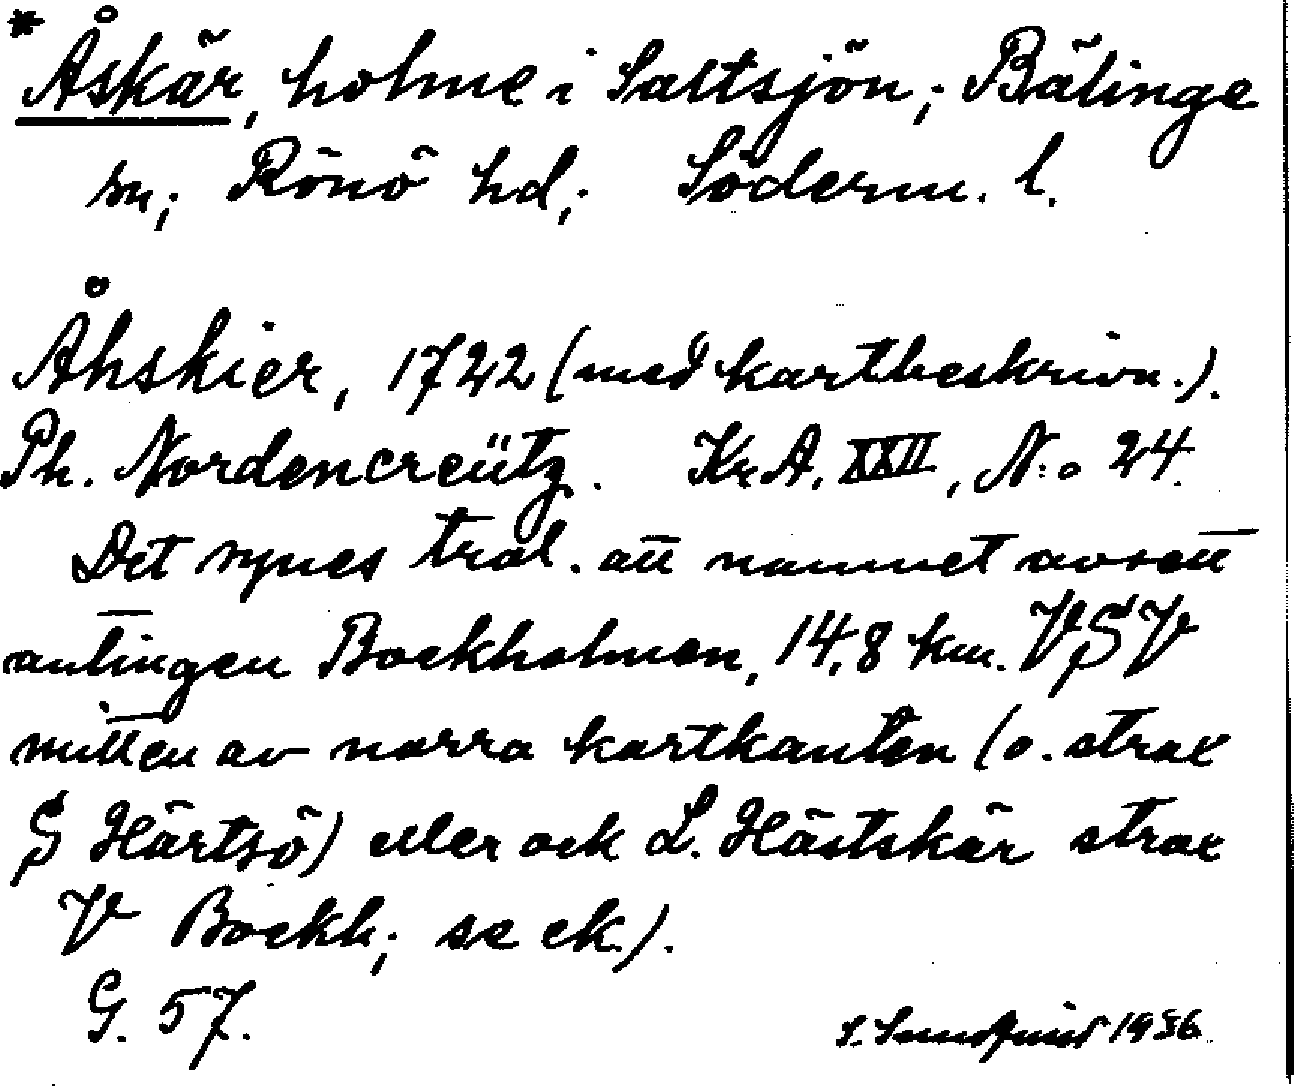 * Åskär, holme i Saltsjön; Bälinge
sn; Rönö hd; Söderm. l.
Åhskier, 1722 (med kartbeskrivn.).
Ph. Nordencreütz. Kr.A. XXII, N:o 24.
Det synes trol. att namnet avsett
antingen Bockholmen, 14,8 km. VSV
mitten av norra kartkanten (o. strax
S Härtsö) eller ock L. Hästskär strax
V Bockh; se ek.).
G. 57.
S. Sundqvist 1936